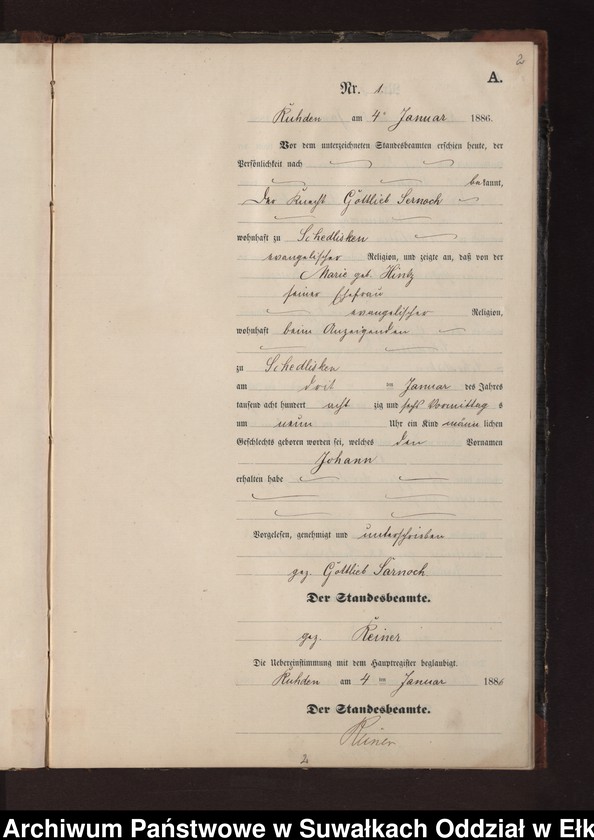 2
A.
Nr. 1.
Ruhden am 4n Januar 1886.
Vor dem unterzeichneten Standesbeamten erschien heute, der
Persönlichkeit nach
bekannt,
Der Knecht Gottlieb Sernoch
wohnhaft zu Schedlisken
evangelischer Religion, und zeigte an, daß von der
Marie geb. Hintz
seiner Ehefrau
evangelischer Religion,
wohnhaft beim Anzeigenden
zu Schedlisken
am drit ten Januar des Jahres
tausend acht hundert acht zig und sechs Vormittag s
um neun Uhr ein Kind männ lichen
Geschlechts geboren worden sei, welches den Vornamen
Johann
erhalten habe
Vorgelesen, genehmigt und unterschrieben
gez. Gottlieb Sarnoch
Der Standesbeamte.
gez. Reiner
Die Uebereinstimmung mit dem Hauptregister beglaubigt.
Ruhden am 4 ten Januar 1886
Der Standesbeamte.
Reiner
2
Archiwum Państwowe w Suwałkach Oddział w Ełk